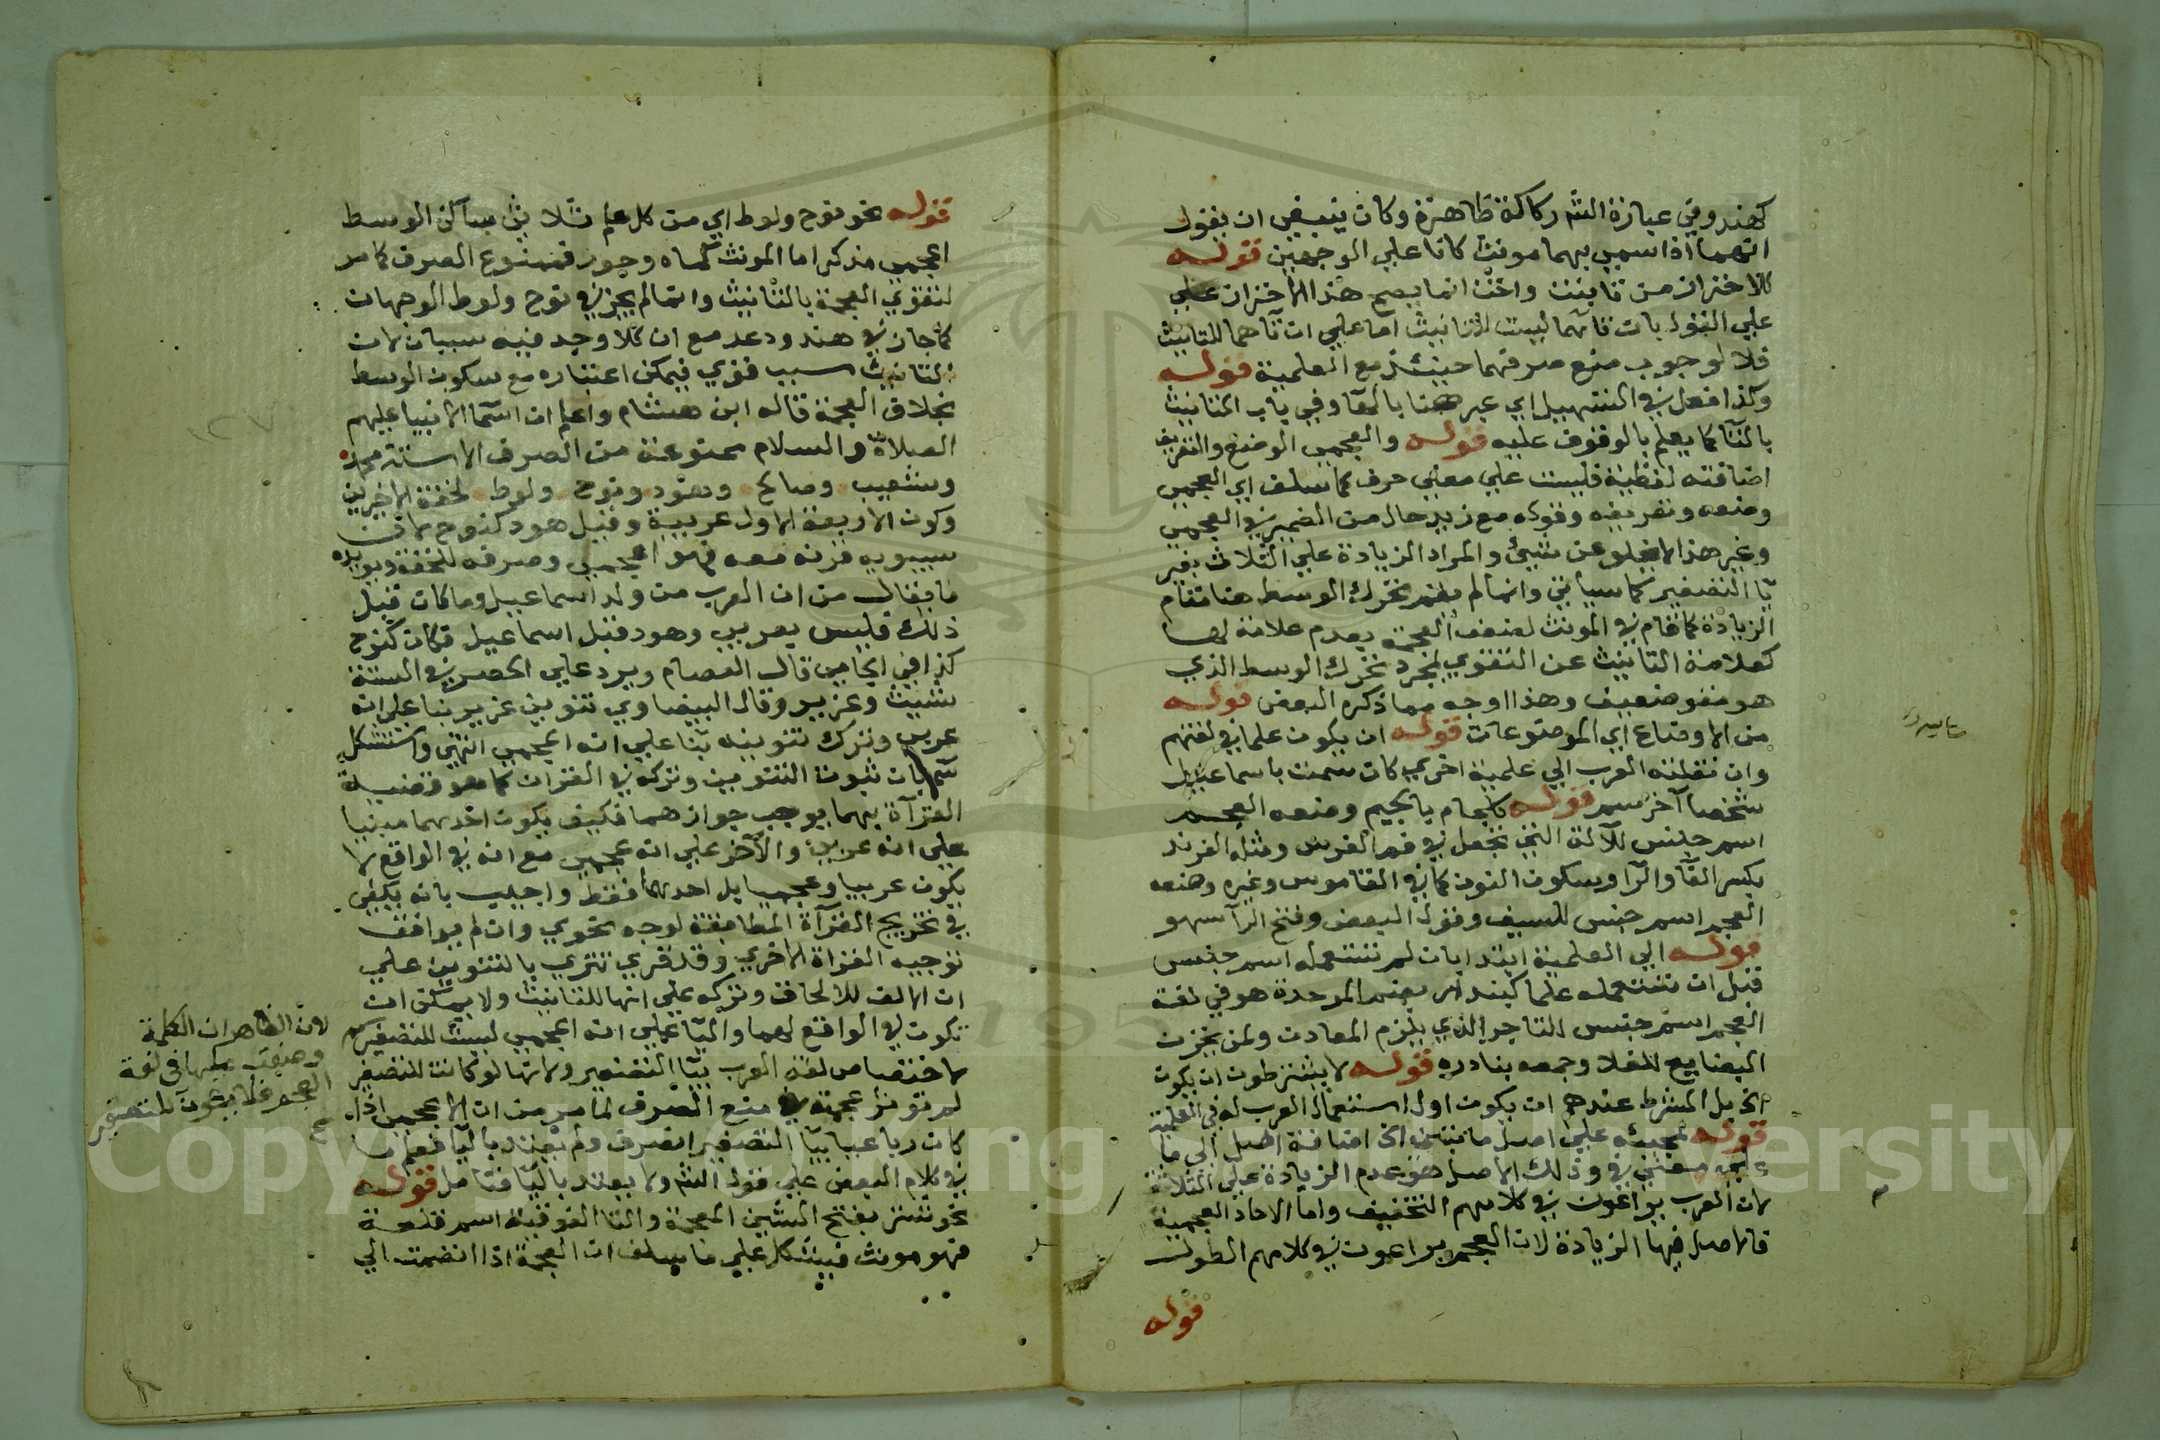 كهند وفي عبارة الشم ركاكة ظاهرة وكان ينبغي ان يقول
انهما اذا سمي بهما مونث كانا علي الوجهين قوله
كالاحتراز من قابنت واخت انما يصح هذا الاحتراز علي
علي القول بان تاتهما ليست للتانيث اما علي ان تآهما للتانيث
فلا لوجوب منع صرفهما حينئذ مع العلمية قوله
وكذا فعل في التسهيل اي عبر هنا بالها وفي باب التانيث
بالتآ كما يعلم بالوقوف عليه قوله والعجمي الوضع والتعريف
اضافته لفظية فليست علي معني حرف كما سلف اي العجمي
وضعه وتعريفه وقوله مع زيد حال من الضمير في العجمي
وغير هذا لا يخلو عن شيئ والمراد الزيادة علي الثلاث بغير
يا التصغير كما سياتي وانما لم يقم تحرك الوسط هنا مقام
الزيادة كما قام في المونث لضعف العجمة بعدم علامة لها
كعلامة التانيث عن التقوي بمجرد تحرك الوسط الذي
هو مقو ضعيف وهذا اوجه مما ذكره البعض قوله
من الاوضاع اي الموضوعات قوله ان يكون علما في لغتهم
وان نقلته العرب الي علمية اخري كان سمت باسماعيل
شخصا آخر سم قوله كلجام بالجيم ومنعه العجم
اسم جنس للآلة التي تجعل في فم الفرس ومثله الفرند
بكسر الفآ والرآ وسكون النون كما في القاموس وغيره وضعه
العجم اسم جنس للسيف وقول البعض وفتح الرآ سهو
قوله الي العلمية ابتدا بان لم تستعمله اسم جنس
قبل ان تستعمله علما كبندار بضم الموحدة هو في لغة
العجم اسم جنس للتاجر الذي يلزم المعادن ولمن يخزن
البضايع للغلا وجمعه بنادره قوله لا يشترطون ان يكون
الخ بل الشرط عندهم ان يكون اول استعمال العرب له في العلمية
قوله لمجيئه علي اصل ما بني الخ اضافة اصل الي ما
علي معني في وذلك الاصل هو عدم الزيادة علي الثلاثة
لان العرب يراعون في كلامهم التخفيف واما الاحاد العجمية
فالاصل فيها الزيادة لان العجم يراعون في كلامهم الطول
قوله
قوله نحو نوح ولوط اي من كل علم ثلاثي ساكن الوسط
اعجمي مذكر اما المونث كماه وجور فممنوع الصرف كما مر
لتقوي العجمة بالتانيث وانما لم يجز في نوح ولوط الوجهان
كما جاز في هند ودعد مع ان كلا وجد فيه سببان لان
التانيث سبب قوي فيمكن اعتباره مع سكون الوسط
بخلاف العجمة قاله ابن هشام واعلم ان اسما الانبيا عليهم
الصلاة والسلام ممنوعة من الصرف الا ستة محمد
وشعيب وصالح وهود ونوح ولوط لخفة الاخيرين
وكون الاربعة الاول عربية وقيل هود كنوح لان
سيبويه قرنه معه فهو اعجمي وصرفه للخفة ويويده
ما يقال من ان العرب من ولد اسماعيل وما كان قبل
ذلك فليس بعربي وهود قبل اسماعيل فكان كنوح
كذا في الجامي قال العصام ويرد علي الحصر في الستة
شيث وعزير وقال البيضاوي تنوين عزير بنا علي انه
عربي وترك تنوينه بنا علي انه اعجمي انتهي واستشكل
سم بان ثبوت التنوين وتركه في القران كما هو قضية
القرآة بهما يوجب جوازهما فكيف يكون احدهما مبنيا
علي انه عربي والآخر علي انه عجمي مع انه في الواقع لا
يكون عربيا وعجميا بل احدهما فقط واجيب بانه يكفي
في تخريج القرآة المطابقة لوجه نحوي وان لم يوافق
توجيه القراة الاخري وقد قري تتري بالتنوين علي
ان الالف للالحاق وتركه علي انها للتانيث ولا يمكن ان
تكون في الواقع لهما واليا علي انه اعجمي ليست للتصغير
لاختصاص لغة العرب بيآ التصغير ولانها لو كانت للتصغير
لم توثر عجمة في منع الصرف لما مر من ان الاعجمي اذا
كان رباعيا بيآ التصغير انصرف ولم يعتد باليآ فعلم ما
في كلام البعض علي قول الشم ولا يعتد باليآ فتامل قوله
نحو شتر بفتح الشين المعجمة والتا الفوقية اسم قلعة
فهو مونث فيشكل علي ما سلف ان العجمة اذا انضمت الي
لان الظاهر ان الكلمة
وضعت عليها في لغة
العجم فلا يكون للتصغير